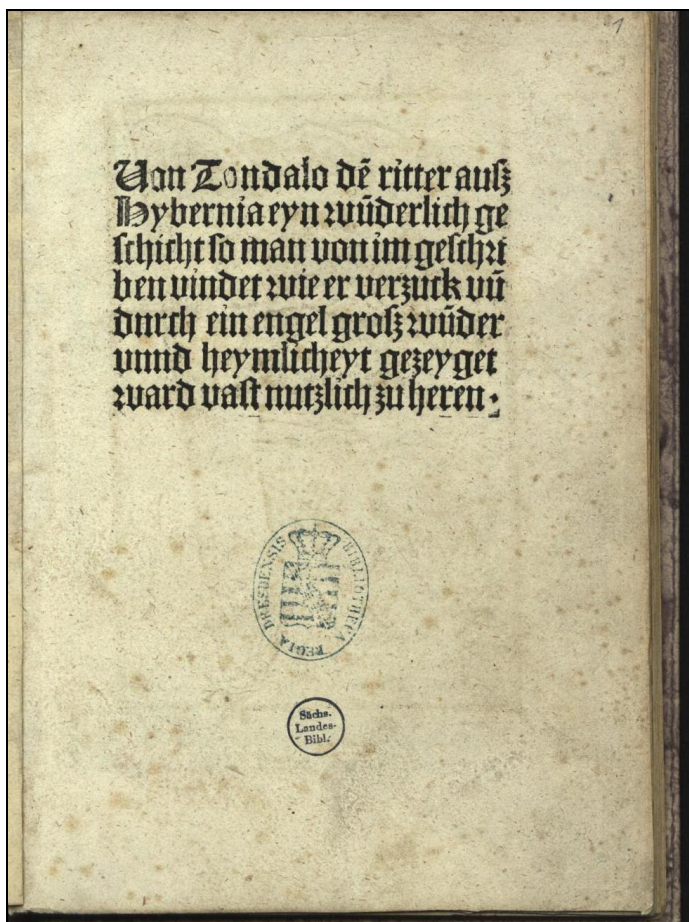 1
Von Tondalo dē ritter auſz
Hybernia eyn wūderlich ge
ſchicht ſo man von im geſchri
ben vindet wie er verzuck vū
durch ein engel groſz wūder
vnnd heymlicheyt gezeyget
ward vaſt nutzlich zu heren.
BIBLIOTHECA REGIA DRESDENSIS
Sächs.
Landes-
Bibl.